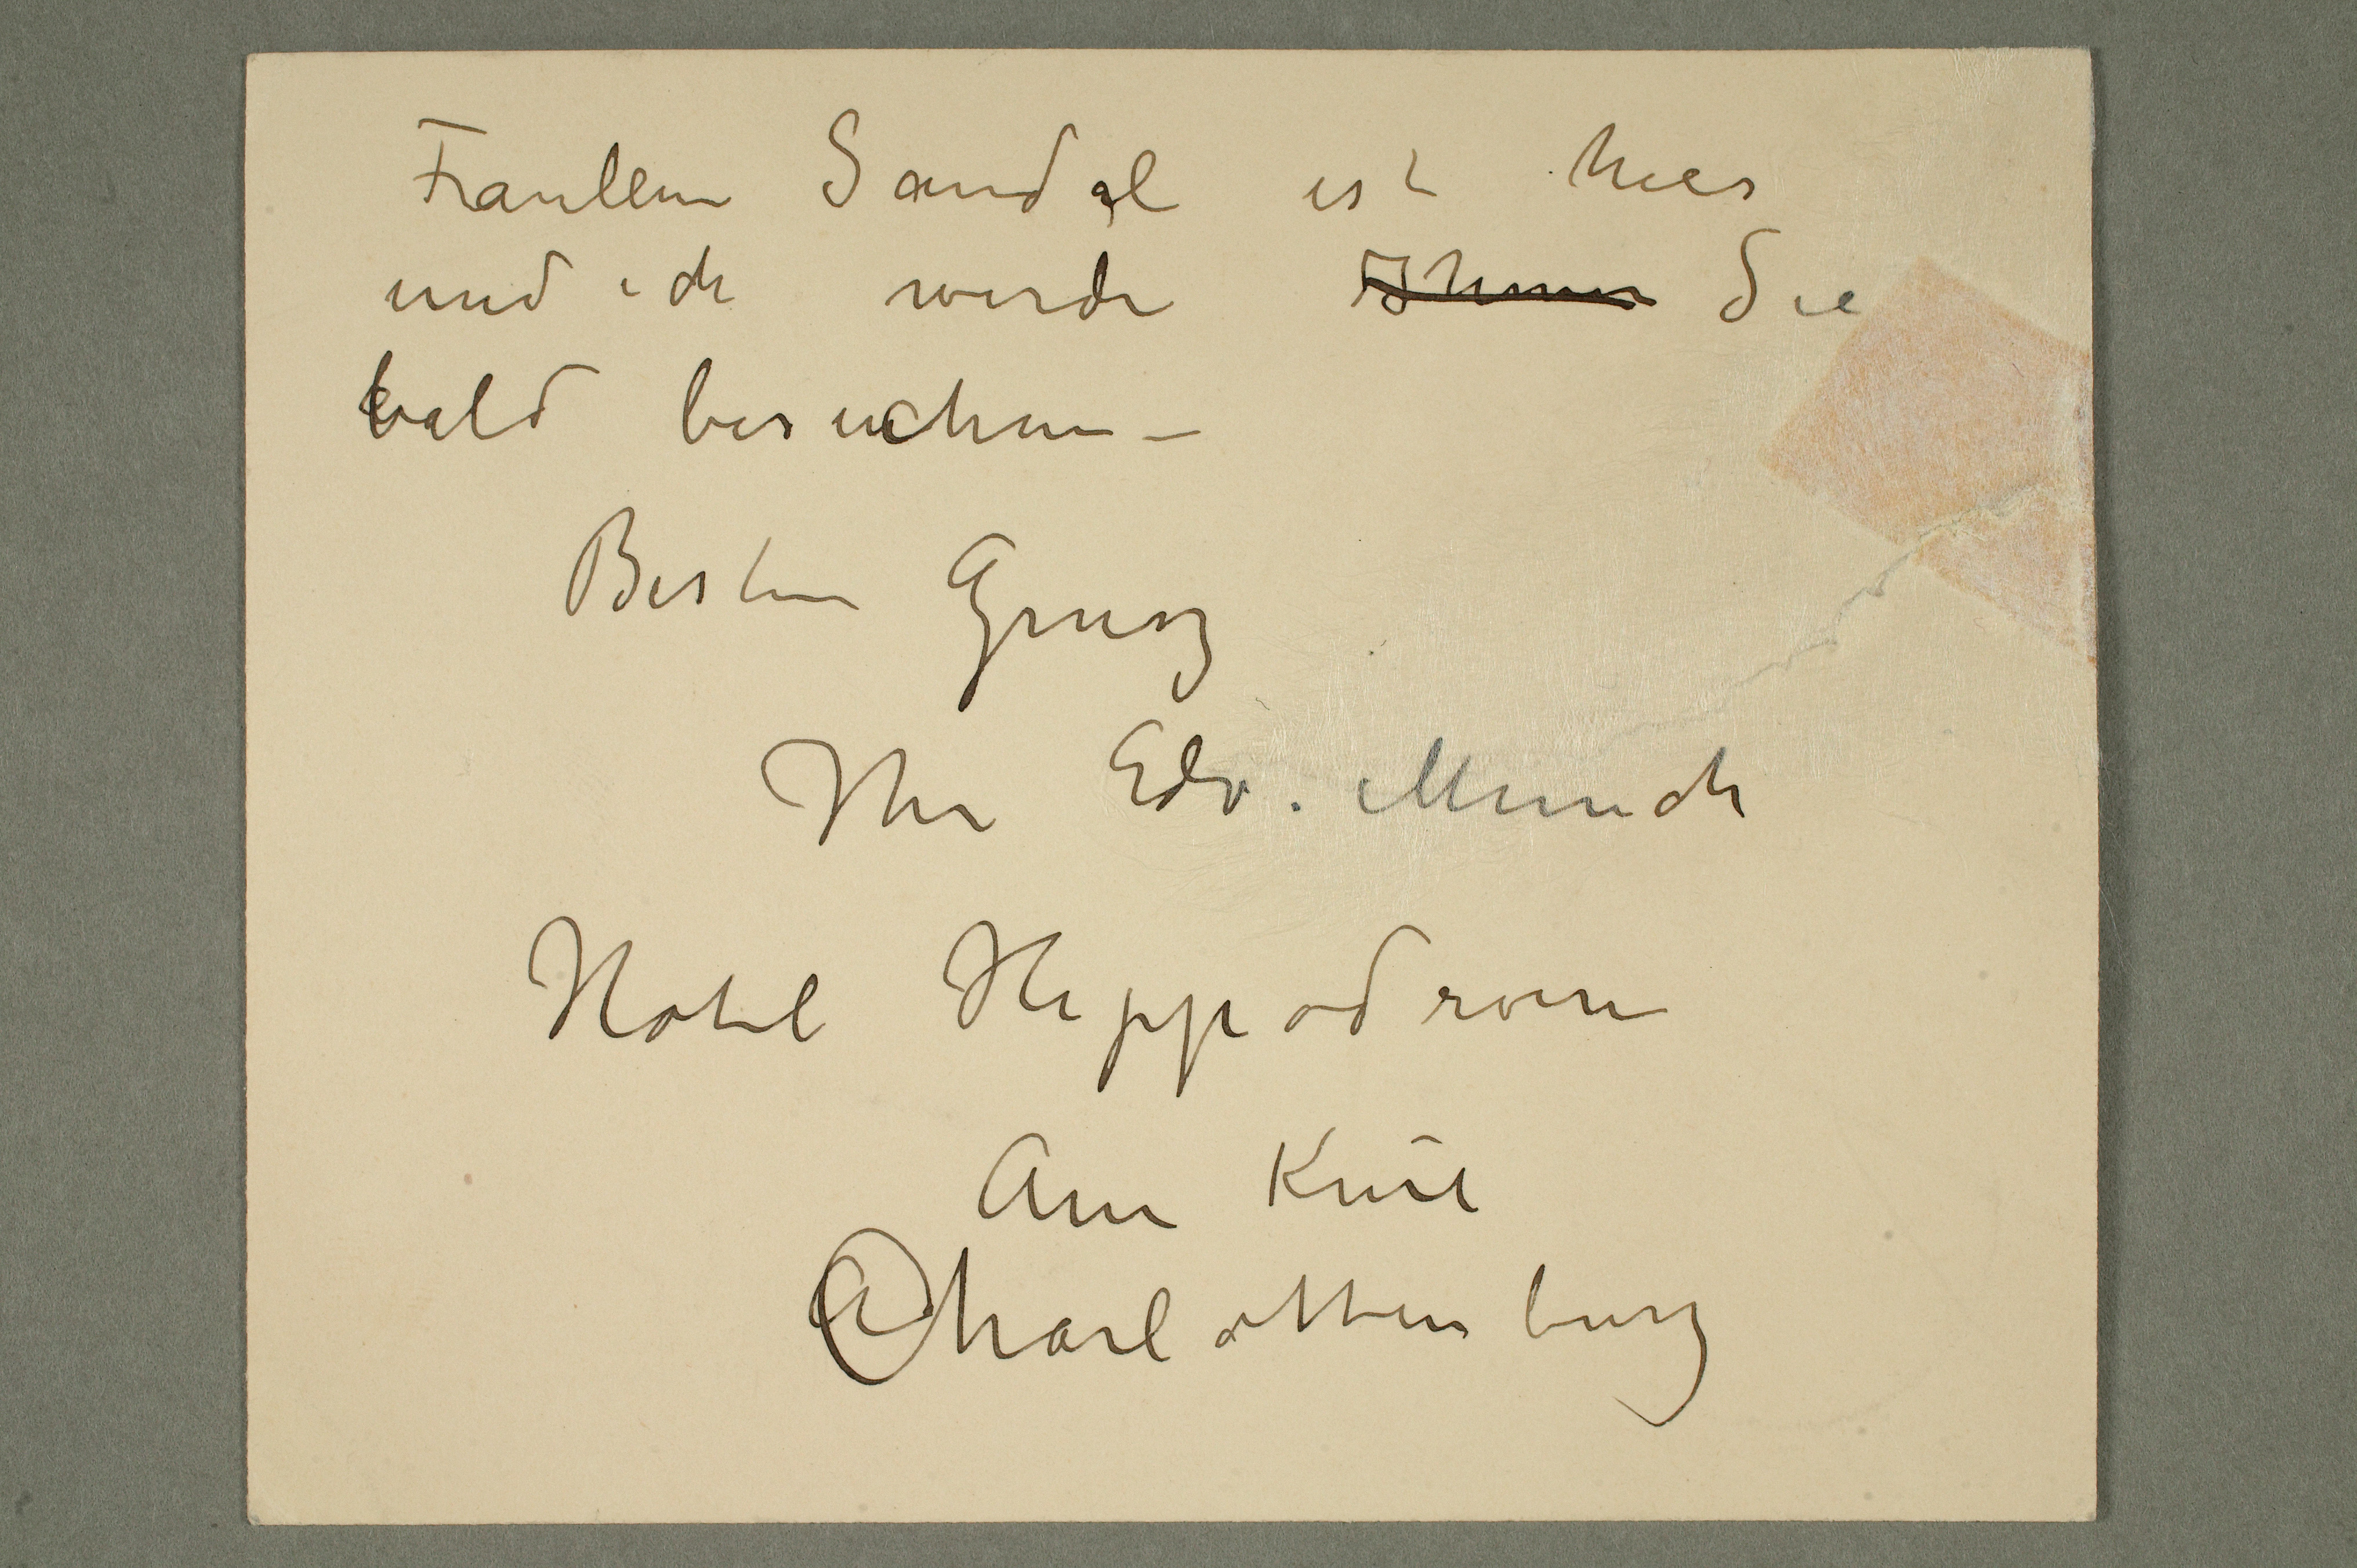 Fraulein Sandal ist hier
und ich werde Ihnen Sie
bald besuchen –
Besten Grusz
Ihr Edv. Munch
Hotel Hippodrom
Am Knie
Charlottenburg